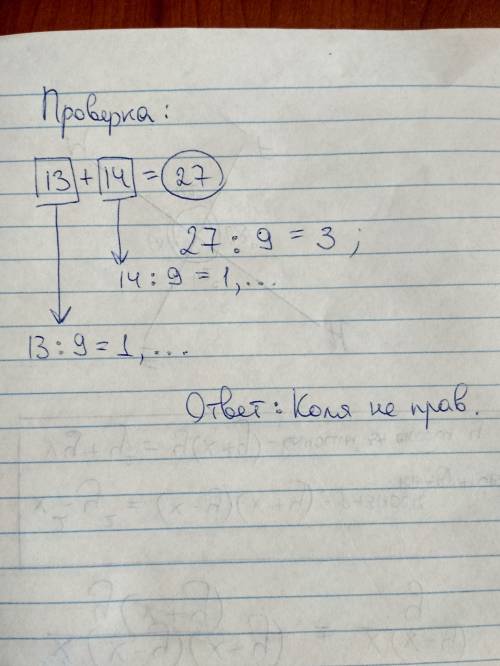 Проверка:
13 + 14 = 27
27 : 9 = 3;
14 : 9 = 1,...
13 : 9 = 1,...
Ответ: Коля не прав.